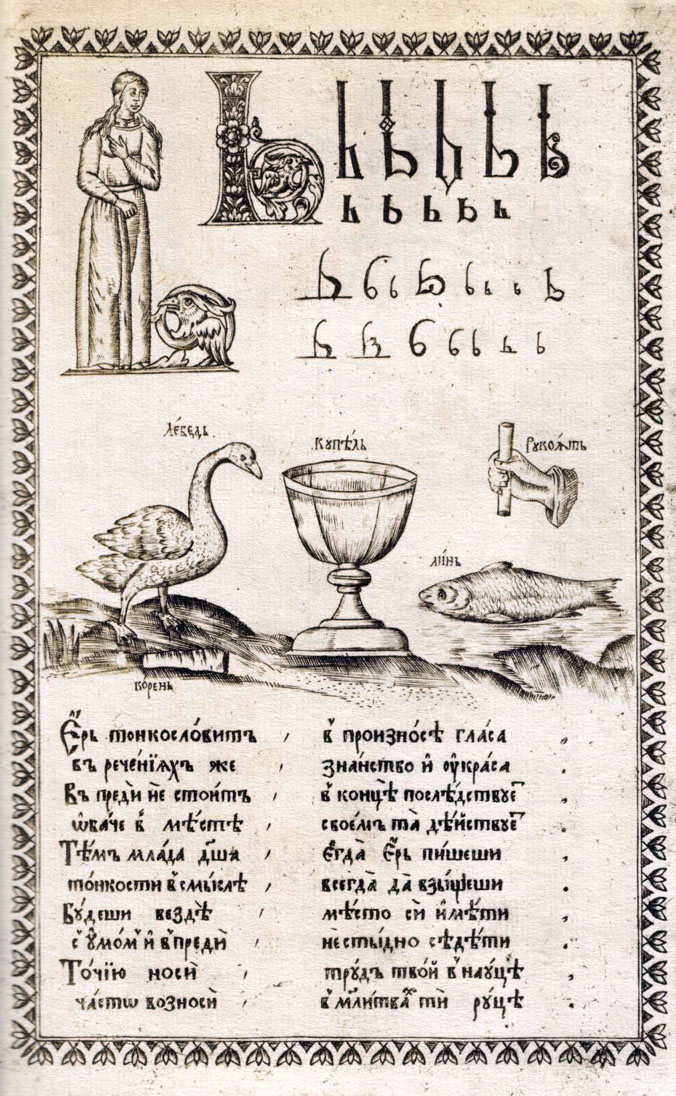 Ь Ь Ь Ь Ь Ь
Ь Ь Ь Ь Ь
Ь
Ь Ь Ь Ь Ь Ь Ь
Ь Ь Ь Ь Ь Ь Ь
ле́бедь
купѣ́ль
рукоѧ́ть
ли́нь
корень
Е҆́рь тонкосло́витъ , в̾ произно́сѣ гла́са ,,
въ рече́нїѧхъ же , зна́нство и҆ ѹ҆кра́са .
Въ преди́ не стои́тъ , в̾ концѣ̀ послѣ́дствуетъ ,
ѻ҆ба́че в̾ мѣ́стѣ , свое́мъ та̀ дѣ́йствуетъ .
Тѣ́мъ мла́да дш҃а , Е҆гда̀ Е҆́рь пи́шеши
то́нкости в̾смы́слѣ , всегда̀ да взы́щеши .
Бу́деши вездѣ̀ , мѣ́сто сѝ и҆мѣ́ти ,
с̾ ѹ҆мо́мъ и҆ в̾преди́ , не сты́дно сѣдѣ́ти .
То́чїю носѝ , тру́дъ тво́й в̾ нау́цѣ ,
ча́стѡ возносѝ , в̾ мл҃итвахъ тѝ ру́цѣ .